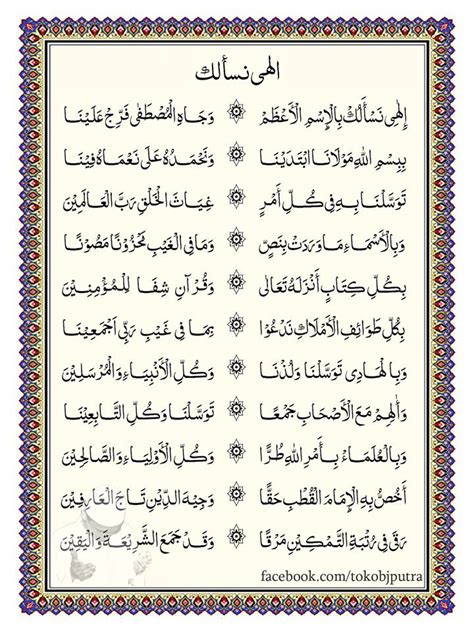 الهي نسألك
إِلٰهِى نَسْأَلُكْ بِالْإِسْمِ الْأَعْظَمْ وَجَاهِ الْمُصْطَفٰى فَرِّجْ عَلَيْنَا
بِبِسْمِ اللهِ مَوْلَانَا ابْتَدَيْنَا وَنَحْمَدُهُ عَلَى نَعْمَاهُ فِيْنَا
تَوَسَّلْنَا بِهِ فِى كُلِّ أَمْرٍ غِيَاثِ الْخَلْقِ رَبِّ الْعَالَمِيْنَ
وَبِالْأَسْمَاءِ مَا وَرَدَتْ بِنَصٍّ وَمَا فِى الْغَيْبِ مَخْزُوْنًا مَصُوْنًا
بِكُلِّ كِتَابٍ أَنْزَلَهُ تَعَالٰى وَقُرْآنٍ شِفَا لِلْمُؤْمِنِيْنَ
بِكُلِّ طَوَائِفِ الْأَمْلَاكِ نَدْعُوْا بِمَا فِى غَيْبِ رَبِّى أَجْمَعِيْنَا
وَبِالْهَادِى تَوَسَّلْنَا وَلُذْنَا وَكُلِّ الْأَنْبِيَاءِ وَالْمُرْسَلِيْنَ
وَأٰلِهِمِ مَعَ الْأَصْحَابِ جَمْعًا تَوَسَّلْنَا وَكُلِّ التَّابِعِيْنَا
وَبِالْعُلَمَاءِ بِأَمْرِ اللهِ طُرًّا وَكُلِّ الْأَوْلِيَاءِ وَالصَّالِحِيْنَ
أَخُصُّ بِهِ الْإِمَامَ الْقُطْبِ حَقًّا وَجِيْهَ الدِّيْنِ تَاجَ الْعَارِفِيْنَ
رَقٰى فِى رُتْبَةِ التَّمْكِيْنِ مَرْقًا وَقَدْ جَمَعَ الشَّرِيْعَةَ وَالْيَقِيْنَ
facebook.com/tokobjputra